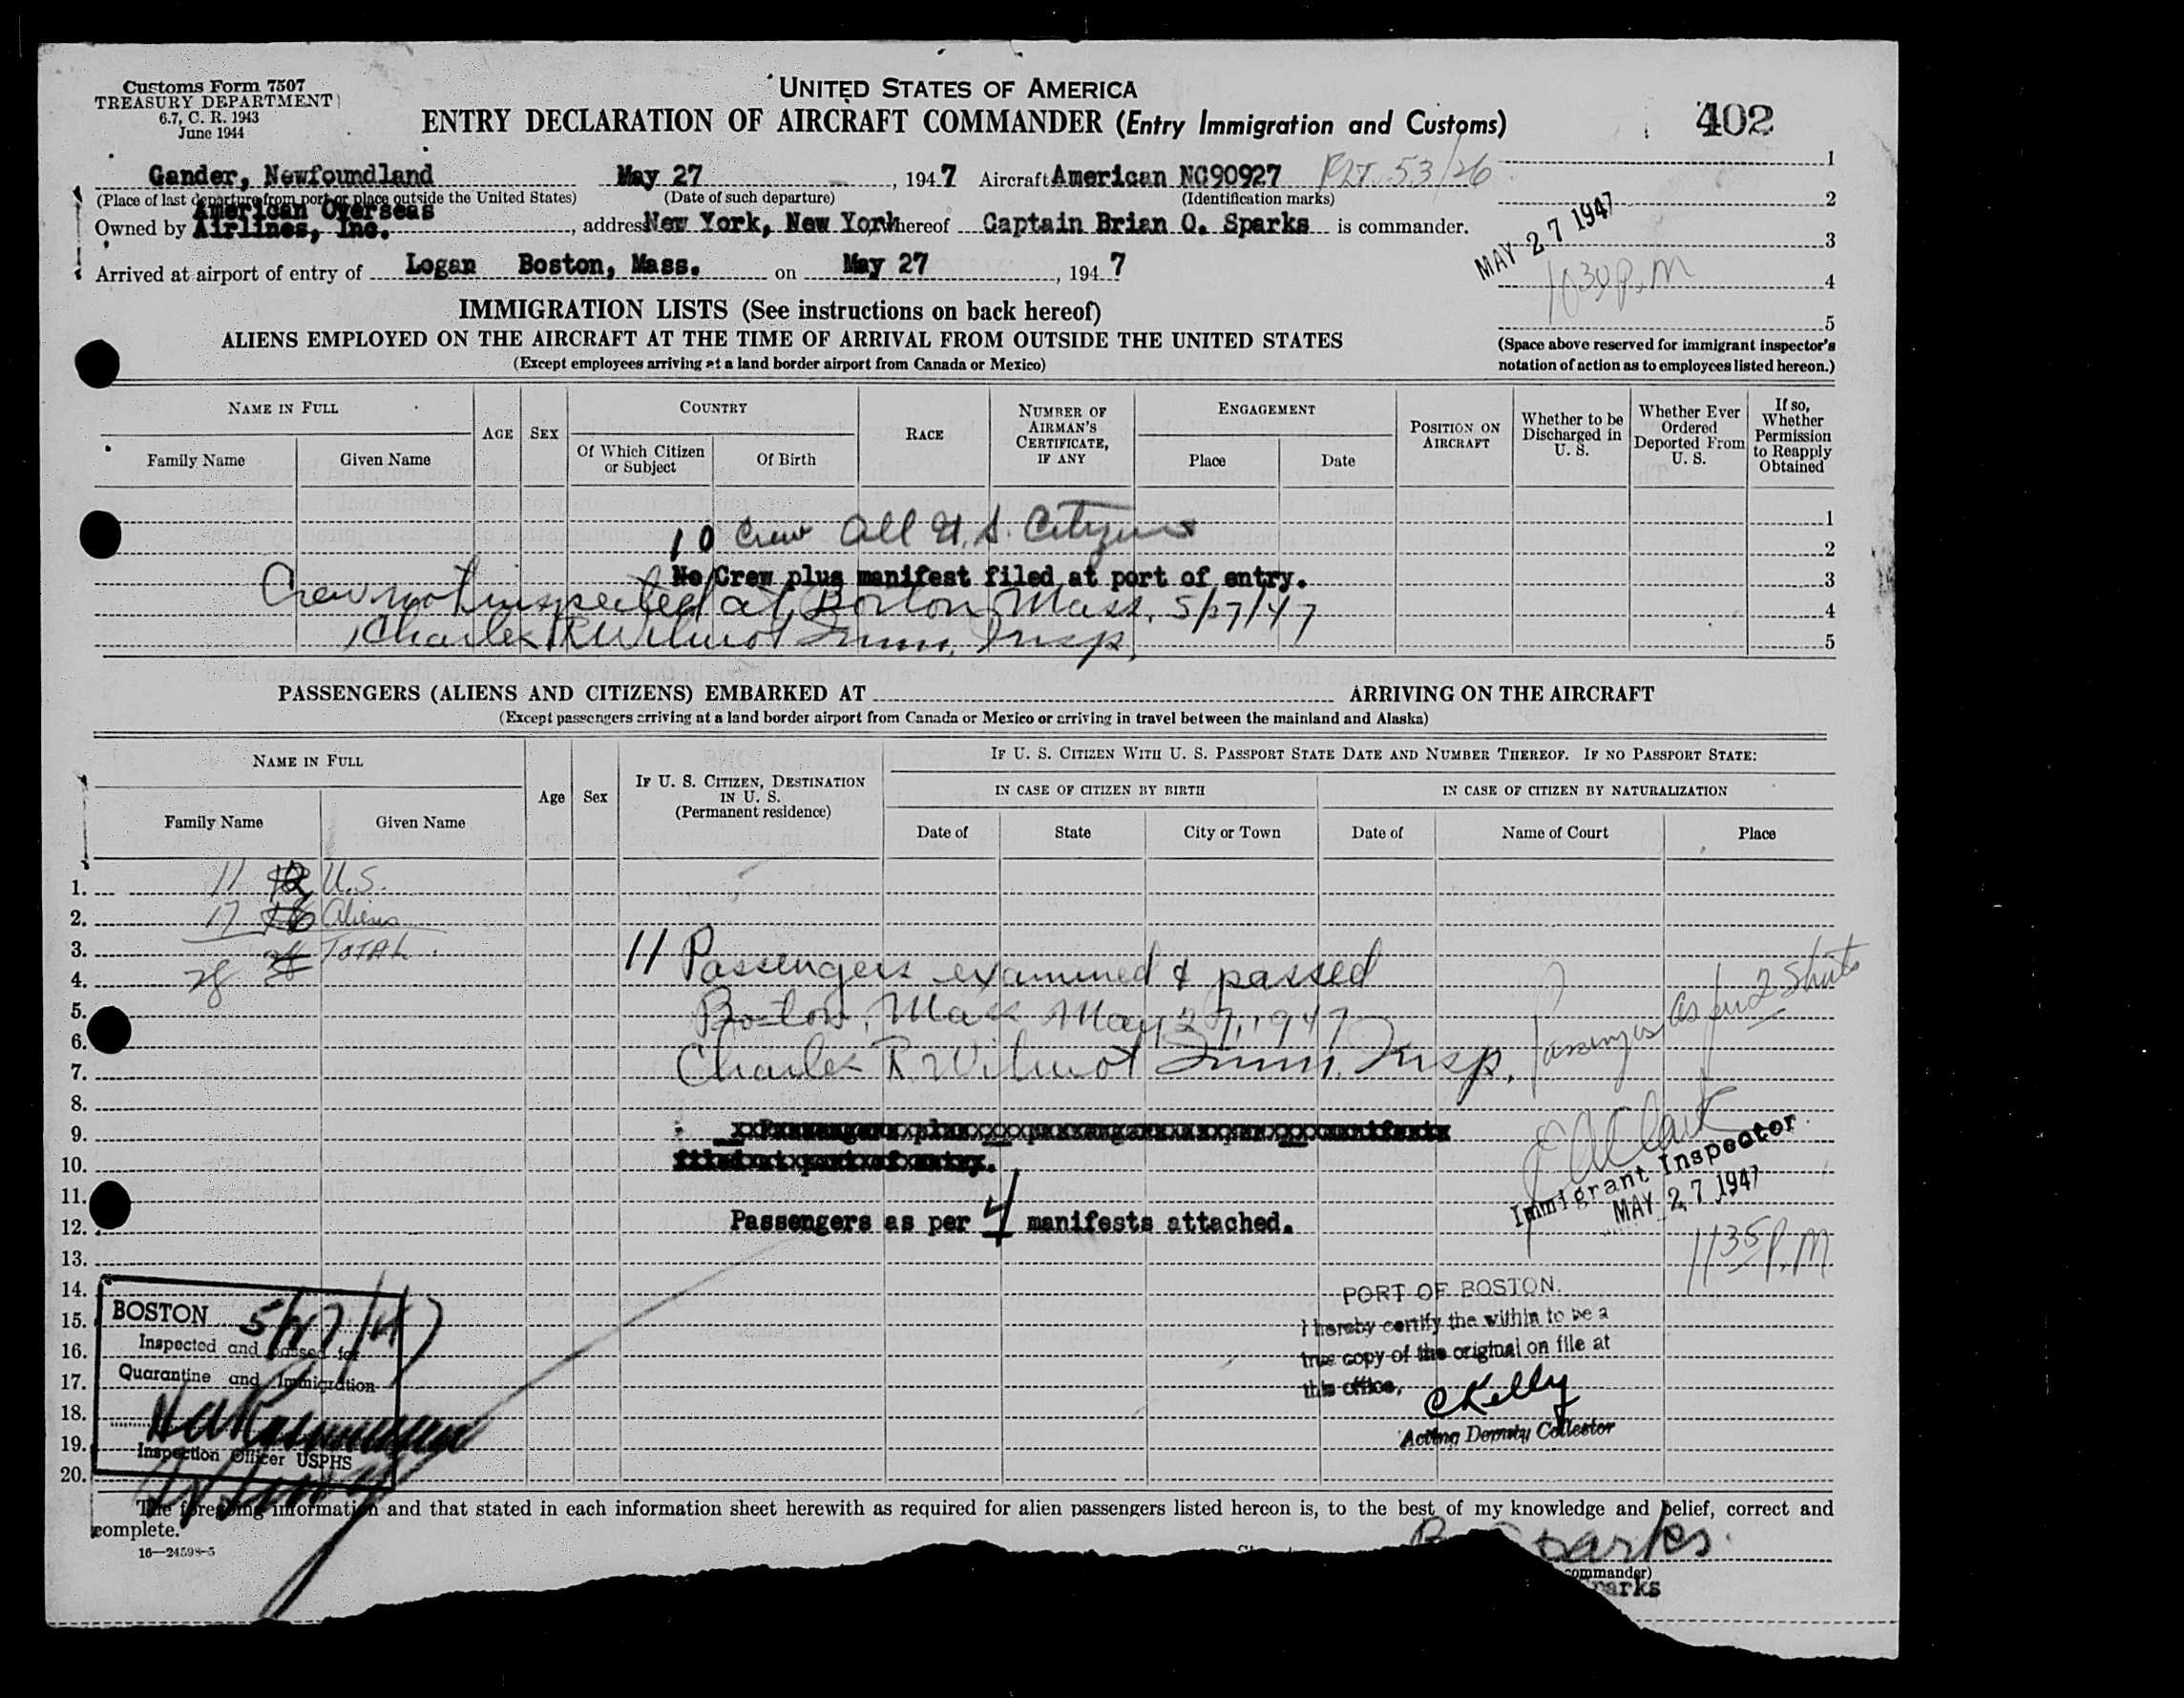 Customs Form 7507
TREASURY DEPARTMENT
6.7, C. R. 1943
June 1944
UNITED STATES OF AMERICA
ENTRY DECLARATION OF AIRCRAFT COMMANDER (Entry Immigration and Customs)
402
Gander, Newfoundland May 27, 1947 Aircraft American NC90927 53/26 1
(Place of last departure from port or place outside the United States) (Date of such departure) (Identification marks) 2
American Overseas
Owned by Airlines, Inc., address New York, New York whereof Captain Brian O. Sparks is commander.
MAY 27 1947 3
Arrived at airport of entry of Logan Boston, Mass. on May 27, 1947
1030 P.M 4
5
IMMIGRATION LISTS (See instructions on back hereof)
ALIENS EMPLOYED ON THE AIRCRAFT AT THE TIME OF ARRIVAL FROM OUTSIDE THE UNITED STATES
(Except employees arriving at a land border airport from Canada or Mexico)
(Space above reserved for immigrant inspector's
notation of action as to employees listed hereon.)
NAME IN FULL
Family Name
Given Name
AGE
SEX
COUNTRY
Of Which Citizen
or Subject
Of Birth
RACE
NUMBER OF
AIRMAN'S
CERTIFICATE,
IF ANY
ENGAGEMENT
Place
Date
POSITION ON
AIRCRAFT
Whether to be
Discharged in
U. S.
Whether Ever
Ordered
Deported From
U. S.
If so,
Whether
Permission
to Reapply
Obtained
1
10 Crew All U.S. Citizens 2
No Crew plus manifest filed at port of entry. 3
Crew not inspected at Boston Mass. 5/27/47 4
Charles R Wilmot Imm. Insp. 5
PASSENGERS (ALIENS AND CITIZENS) EMBARKED AT ARRIVING ON THE AIRCRAFT
(Except passengers arriving at a land border airport from Canada or Mexico or arriving in travel between the mainland and Alaska)
NAME IN FULL
Family Name
Given Name
Age
Sex
IF U. S. CITIZEN, DESTINATION
IN U. S.
(Permanent residence)
IF U. S. CITIZEN WITH U. S. PASSPORT STATE DATE AND NUMBER THEREOF. IF NO PASSPORT STATE:
IN CASE OF CITIZEN BY BIRTH
Date of
State
City or Town
IN CASE OF CITIZEN BY NATURALIZATION
Date of
Name of Court
Place
1. 11 12 U.S.
2. 17 16 Aliens
3. 28 TOTAL
4. 28
11 Passengers examined & passed
5. Boston, Mass May 27, 1947
6.
7. Charles R. Wilmot Imm. Insp.
Passengers as per 2 Shits
8.
9. Passengers plus passengers as per manifests
10. filed at port of entry.
11.
12. Passengers as per 4 manifests attached.
13.
14.
15.
16.
17.
18.
19.
20.
Immigrant Inspector
MAY 27 1947
1135 P.M
BOSTON 5/27/47
Inspected and passed for
Quarantine and Immigration
Inspection Officer USPHS
PORT OF BOSTON.
I hereby certify the within to be a
true copy of the original on file at
this office.
C Kelly
Acting Deputy Collector
The foregoing information and that stated in each information sheet herewith as required for alien passengers listed hereon is, to the best of my knowledge and belief, correct and
complete.
16—24598-5
Sparks
commander)
parks